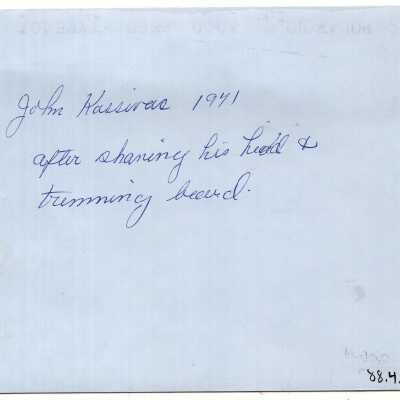 John Kassivas 1971
after shaving his head &
trimming beard.
88.4.